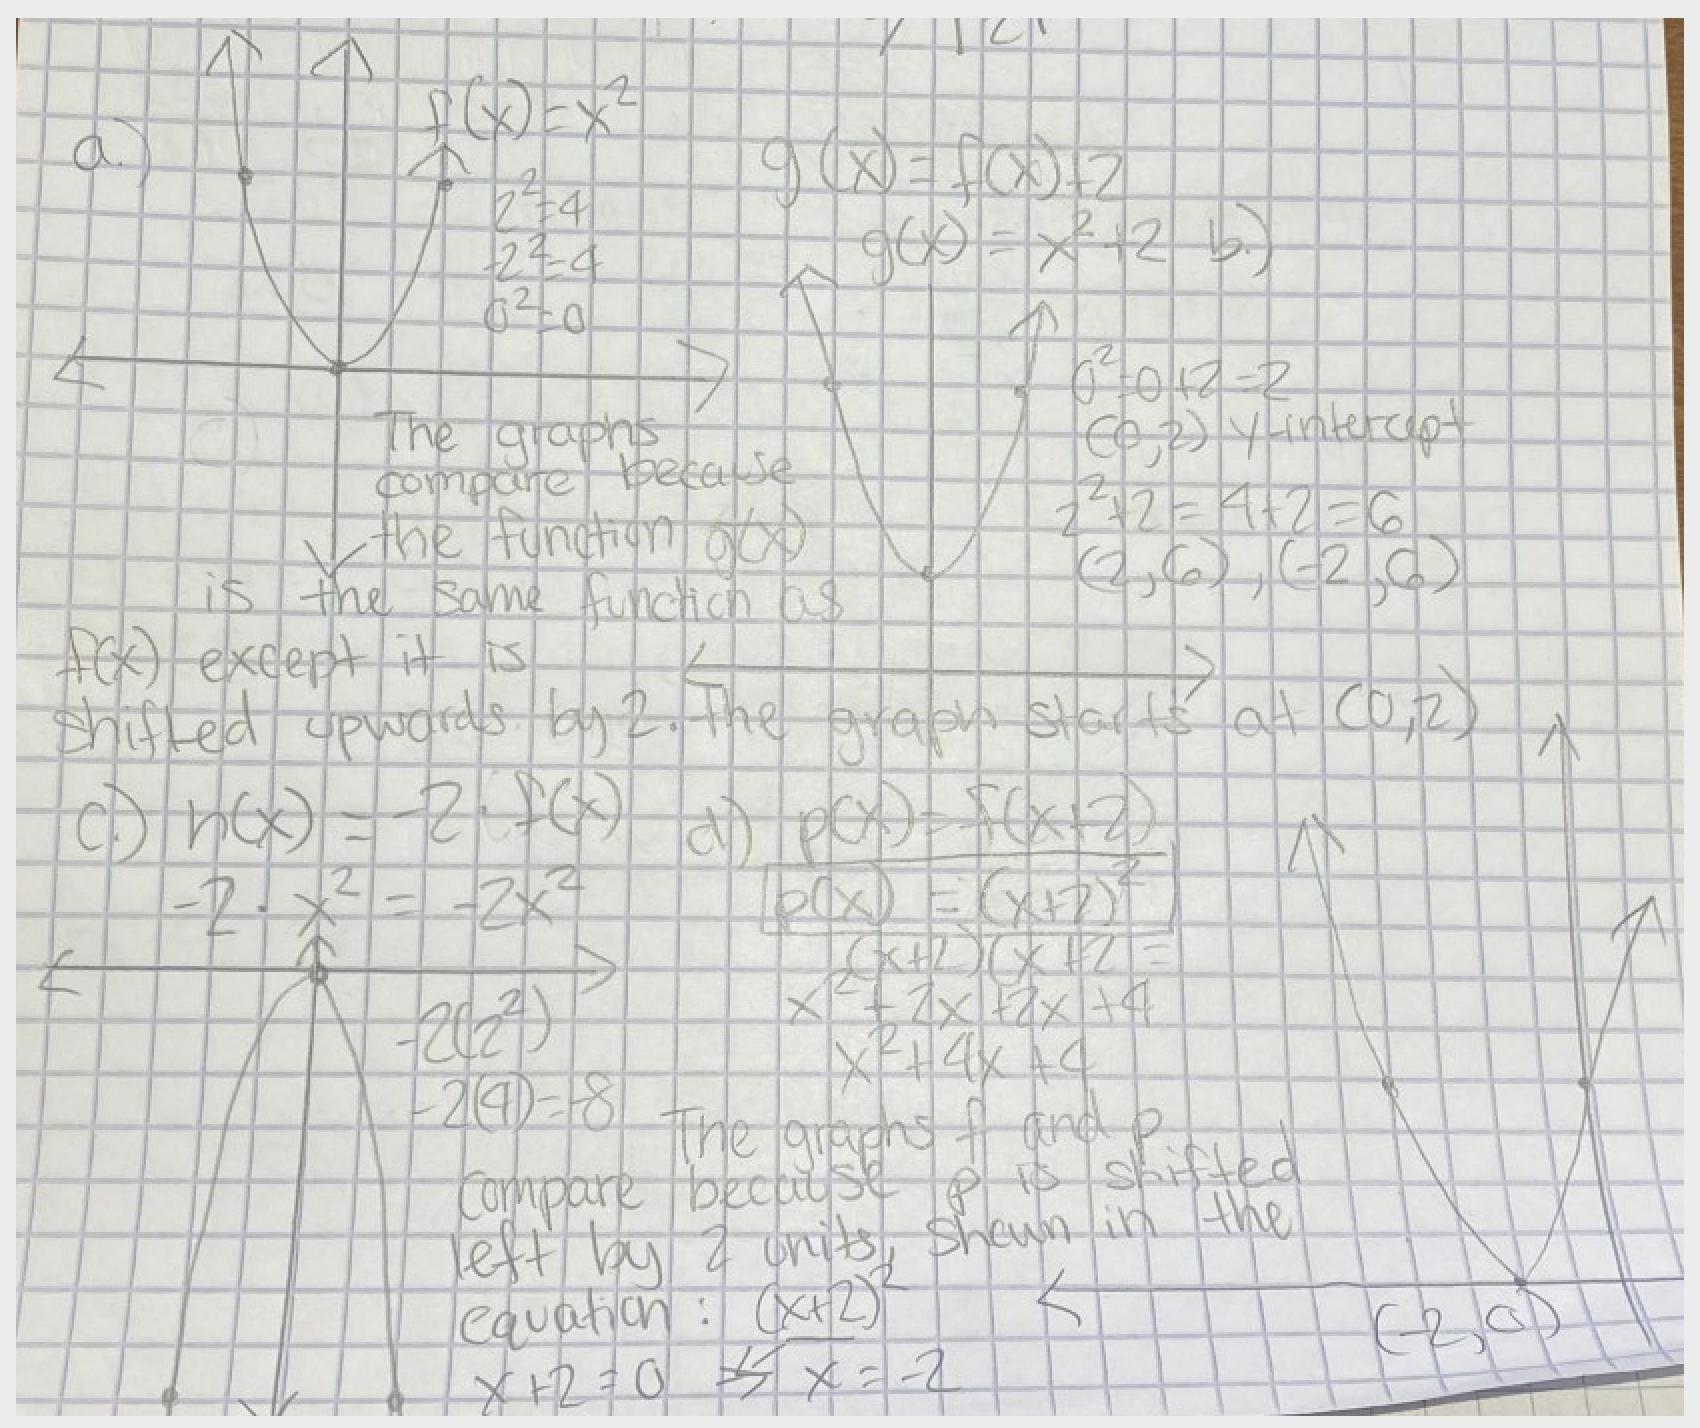 a.)
f(x)=x²
2²=4
-2²=4
0²=0
g(x)=f(x)+2
g(x)=x²+2 b.)
0²=0+2=2
(0,2) y-intercept
2²+2=4+2=6
(2,6),(-2,6)
The graphs
compare because
the function g(x)
is the same function as
f(x) except it is
shifted upwards by 2. The graph starts at (0,2)
c.) h(x)=-2·f(x)
-2·x²=-2x²
-2(2²)
-2(4)=-8
d) p(x)=f(x+2)
p(x)=(x+2)²
(x+2)(x+2=
x²+2x+2x+4
x²+4x+4
The graphs f and p
compare because p is shifted
left by 2 units, shown in the
equation: (x+2)²
x+2=0 x=-2
(-2,0)